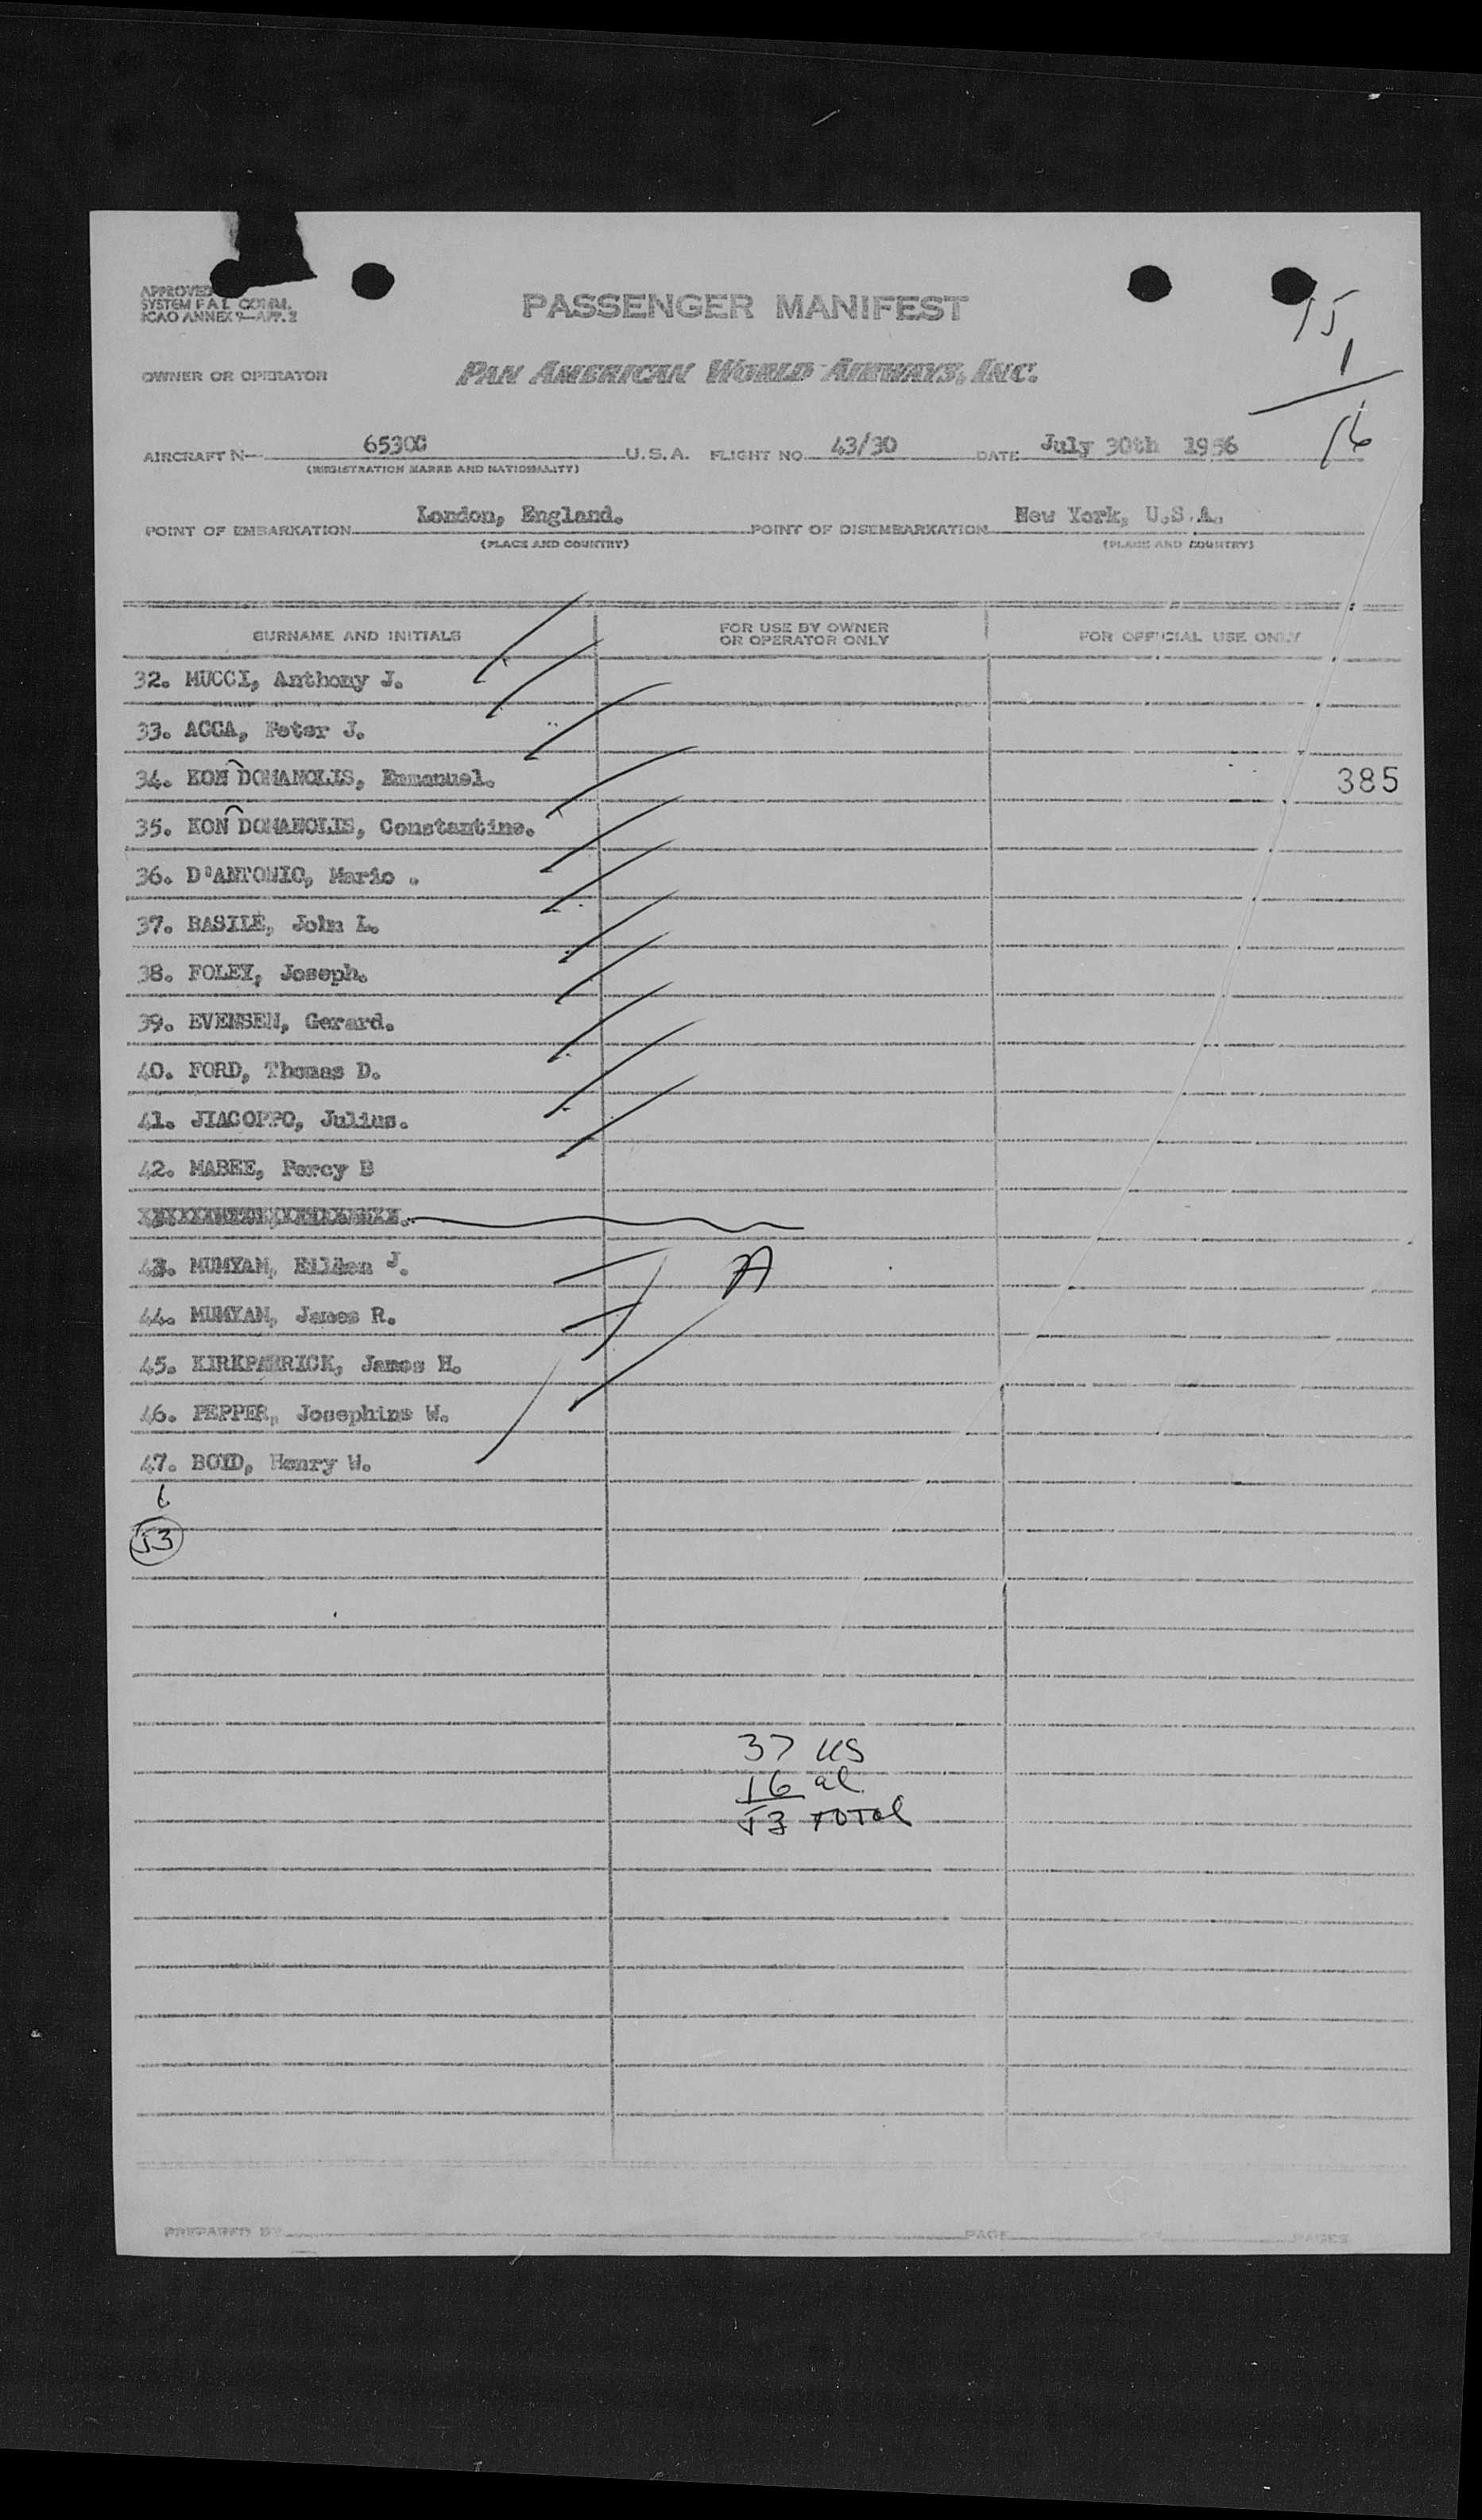 APPROVED
SYSTEM F.A.L. COMM.
ICAO ANNEX 9—APP. 2
PASSENGER MANIFEST
15
1
16
OWNER OR OPERATOR PAN AMERICAN WORLD AIRWAYS, INC.
AIRCRAFT N— 6530C U.S.A. FLIGHT NO. 43/30 DATE July 30th 1956
(REGISTRATION MARKS AND NATIONALITY)
POINT OF EMBARKATION London, England. POINT OF DISEMBARKATION New York, U.S.A.
(PLACE AND COUNTRY) (PLACE AND COUNTRY)
SURNAME AND INITIALS FOR USE BY OWNER OR OPERATOR ONLY FOR OFFICIAL USE ONLY
32. MUCCI, Anthony J.
33. ACCA, Peter J.
34. KON DOMANOLIS, Emmanuel. 385
35. KON DOMANOLIS, Constantine.
36. D'ANTONIO, Mario .
37. BASILE, John L.
38. FOLEY, Joseph.
39. EVENSEN, Gerard.
40. FORD, Thomas D.
41. JIACOPPO, Julius.
42. MABEE, Percy B
43. MUMYAN, J. A
44. MUMYAN, James R.
45. KIRKPATRICK, James H.
46. PEPPER, Josephine W.
47. BOYD, Henry W.
6
53
37 US
16 al
53 TOTAL
PREPARED BY PAGE OF PAGES